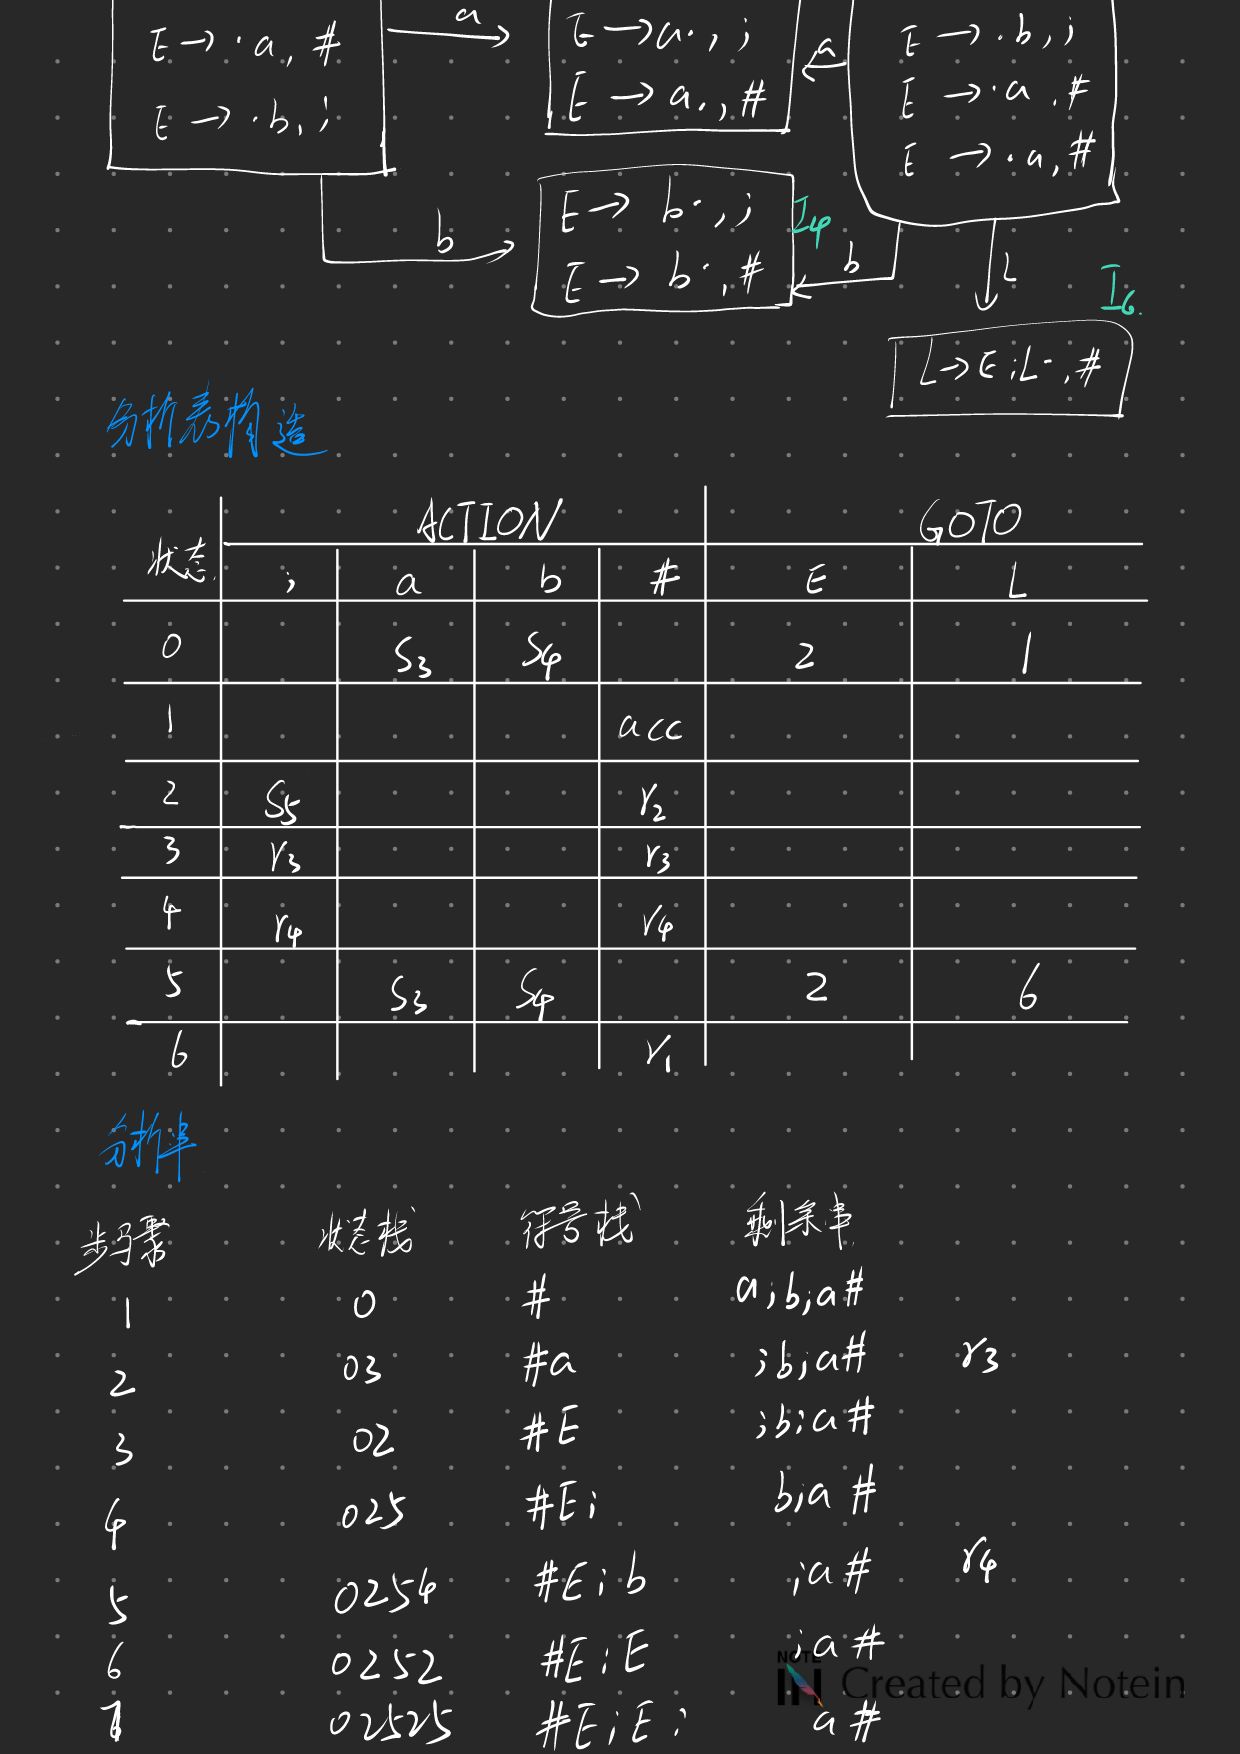 E → ·a, #
E → ·b, ;
a
E → a·, ;
E → a·, #
a
E → ·b, ;
E → ·a, #
E → ·a, #
b
E → b·, ;
E → b·, #
I4
b
L
I6.
L → E;L·, #
分析表构造
状态 ACTION GOTO
; a b # E L
0 S3 S4 2 1
1 acc
2 S5 r2
3 r3 r3
4 r4 r4
5 S3 S4 2 6
6 r1
分析串
步骤 状态栈 符号栈 剩余串
1 0 # a;b;a#
2 03 #a ;b;a# r3
3 02 #E ;b;a#
4 025 #E; b;a#
5 0254 #E;b ;a# r4
6 0252 #E;E ;a#
7 02525 #E;E; a#
NOTE IN Created by Notein